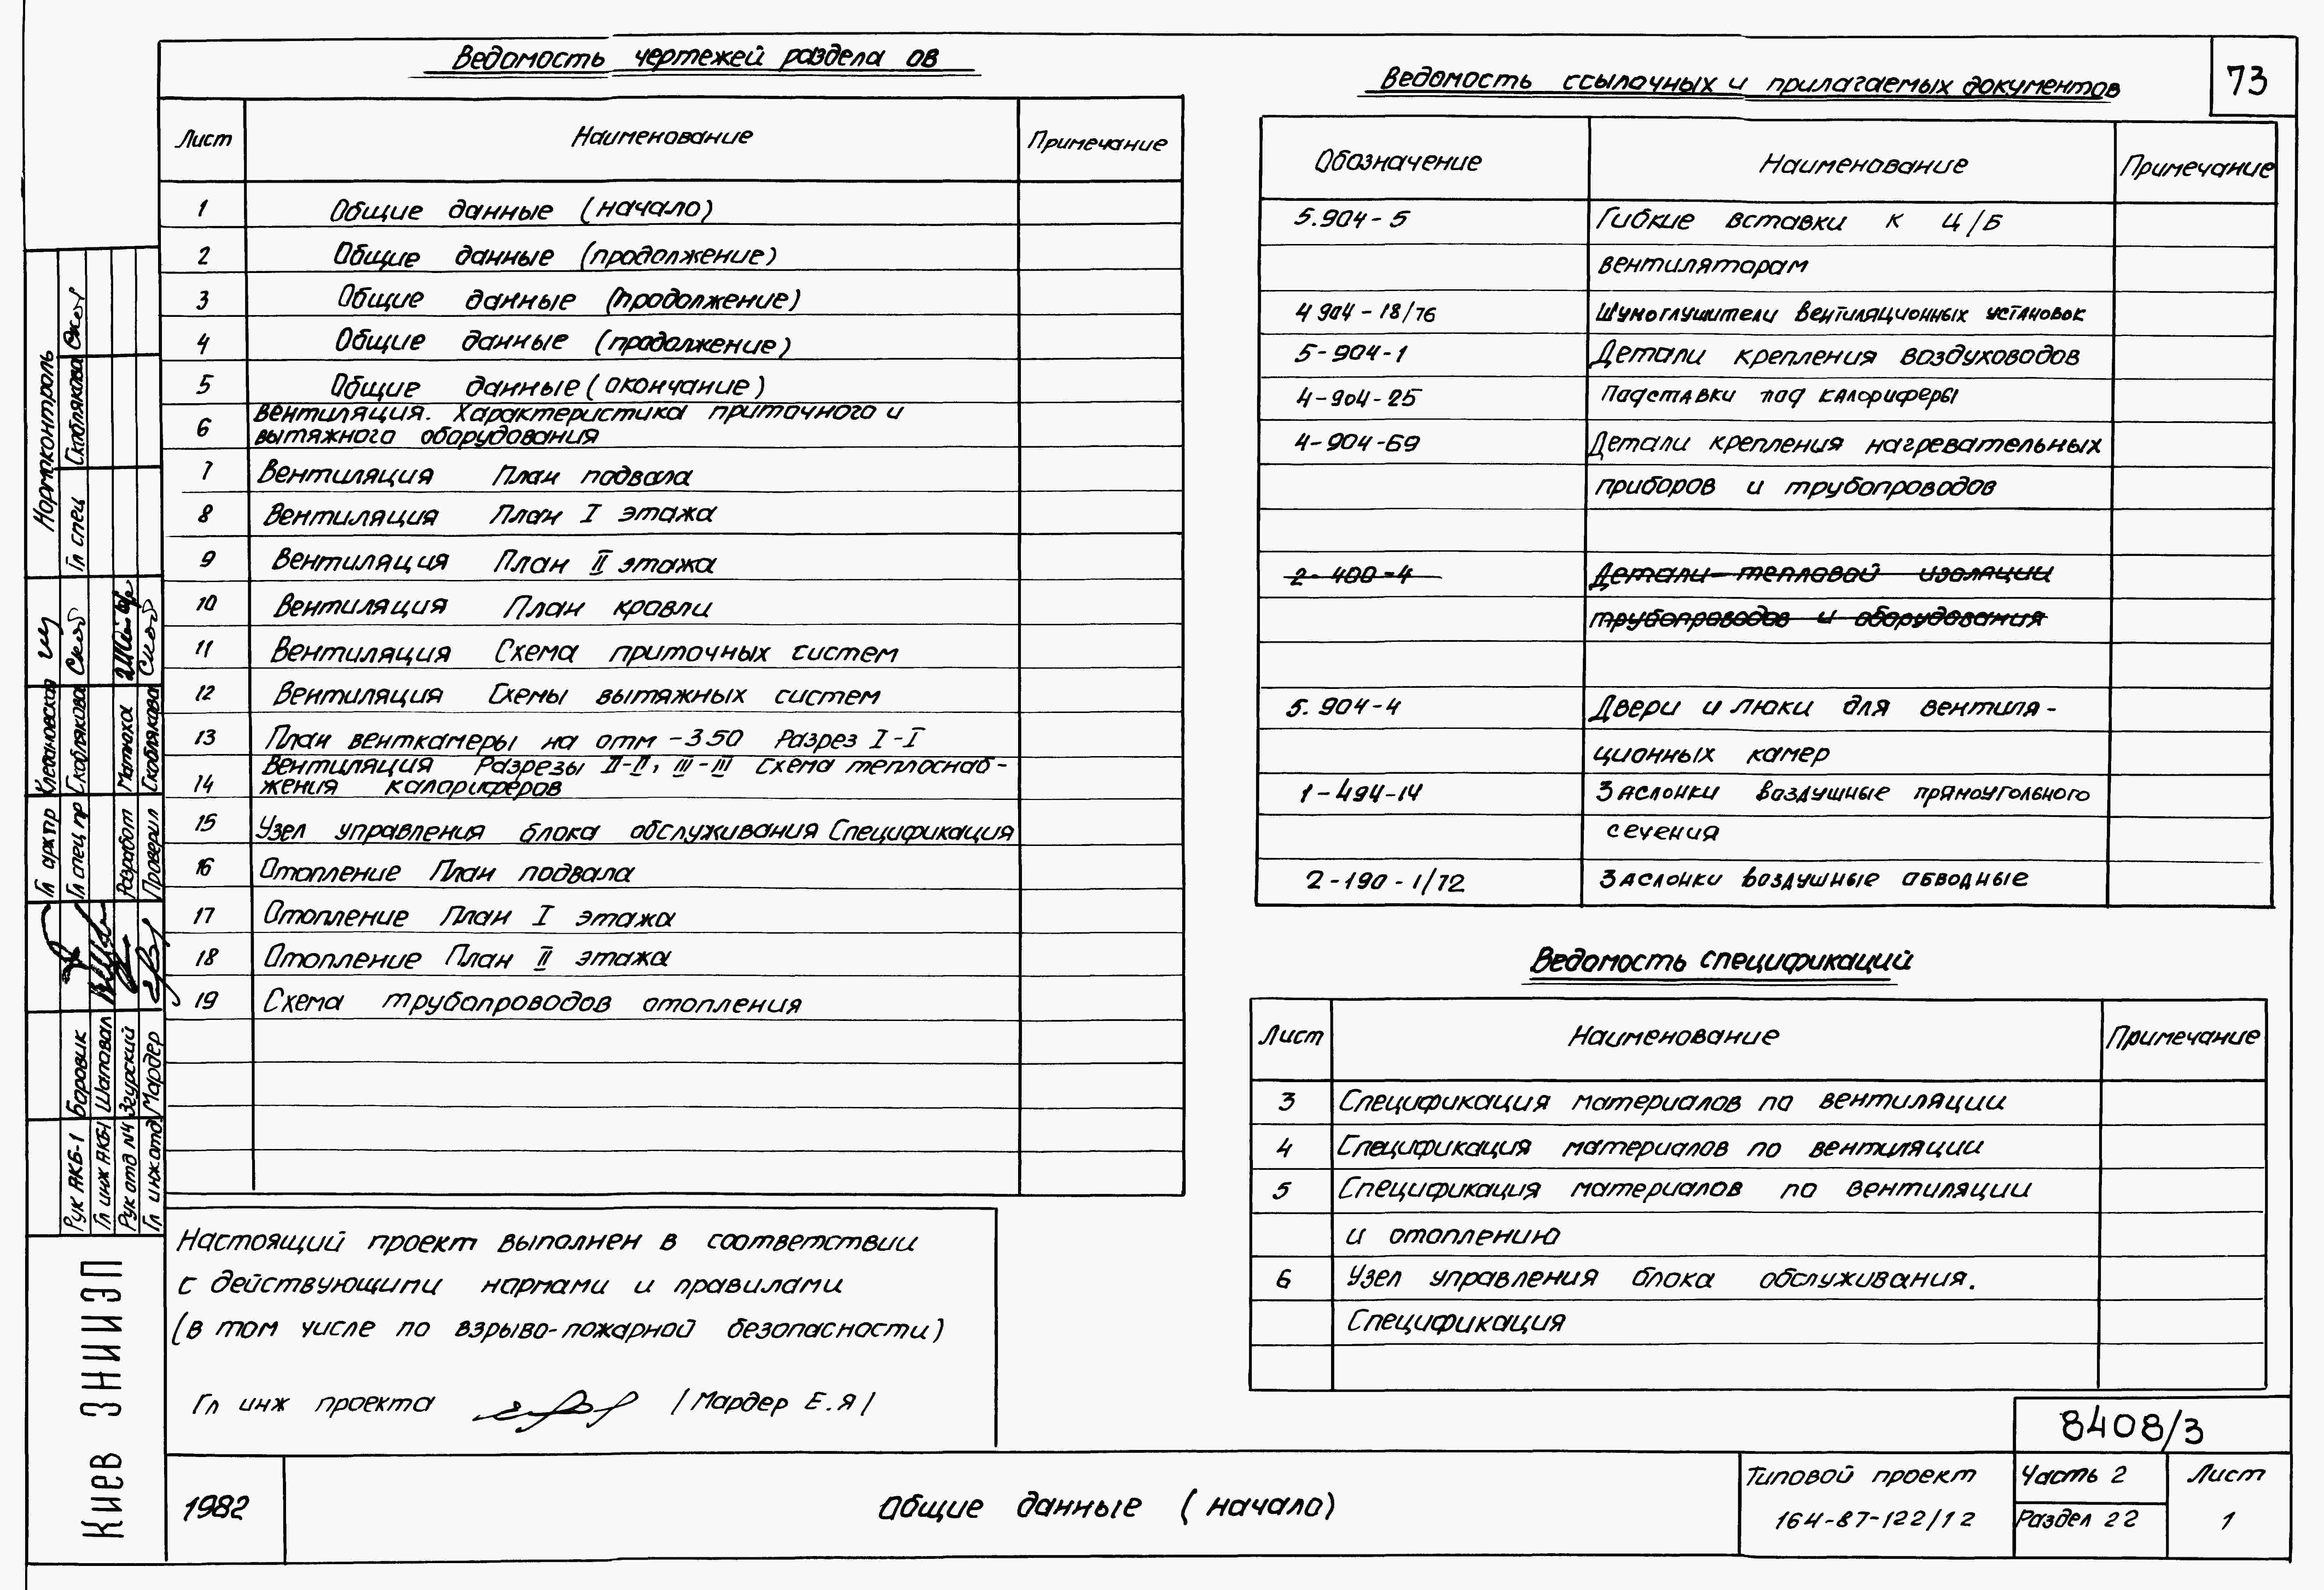 73
Ведомость чертежей раздела ОВ
Лист Наименование Примечание
1 Общие данные (начало)
2 Общие данные (продолжение)
3 Общие данные (продолжение)
4 Общие данные (продолжение)
5 Общие данные (окончание)
6 Вентиляция. Характеристика приточного и
вытяжного оборудования
7 Вентиляция План подвала
8 Вентиляция План I этажа
9 Вентиляция План II этажа
10 Вентиляция План кровли
11 Вентиляция Схема приточных систем
12 Вентиляция Схемы вытяжных систем
13 План венткамеры на отм -3.50 Разрез I-I
14 Вентиляция Разрезы II-II, III-III Схема теплоснаб-
жения калориферов
15 Узел управления блока обслуживания Спецификация
16 Отопление План подвала
17 Отопление План I этажа
18 Отопление План II этажа
19 Схема трубопроводов отопления
Ведомость ссылочных и прилагаемых документов
Обозначение Наименование Примечание
5.904-5 Гибкие вставки к Ц/Б
вентиляторам
4 904-18/76 Шумоглушители вентиляционных установок
5-904-1 Детали крепления воздуховодов
4-904-25 Подставки под калориферы
4-904-69 Детали крепления нагревательных
приборов и трубопроводов
2-400-4 Детали тепловой изоляции
трубопроводов и оборудования
5.904-4 Двери и люки для вентиля-
ционных камер
1-494-14 Заслонки воздушные прямоугольного
сечения
2-190-1/72 Заслонки воздушные обводные
Ведомость спецификаций
Лист Наименование Примечание
3 Спецификация материалов по вентиляции
4 Спецификация материалов по вентиляции
5 Спецификация материалов по вентиляции
и отоплению
6 Узел управления блока обслуживания.
Спецификация
Настоящий проект выполнен в соответствии
с действующими нормами и правилами
(в том числе по взрыво-пожарной безопасности)
Гл инж проекта /Мардер Е.Я/
Нормоконтроль
Гл спец Скоблякова
Гл арх пр
Гл спец пр Скоблякова
Разработ Матюха
Проверил Скоблякова
Рук АКБ-1 Боровик
Гл инж АКБ-1 Шаповал
Рук отд №4 Згурский
Гл инж отд Мардер
Киев ЗНИИЭП
8408/3
1982
Общие данные (начало)
Типовой проект
164-87-122/12
Часть 2
Раздел 22
Лист
1